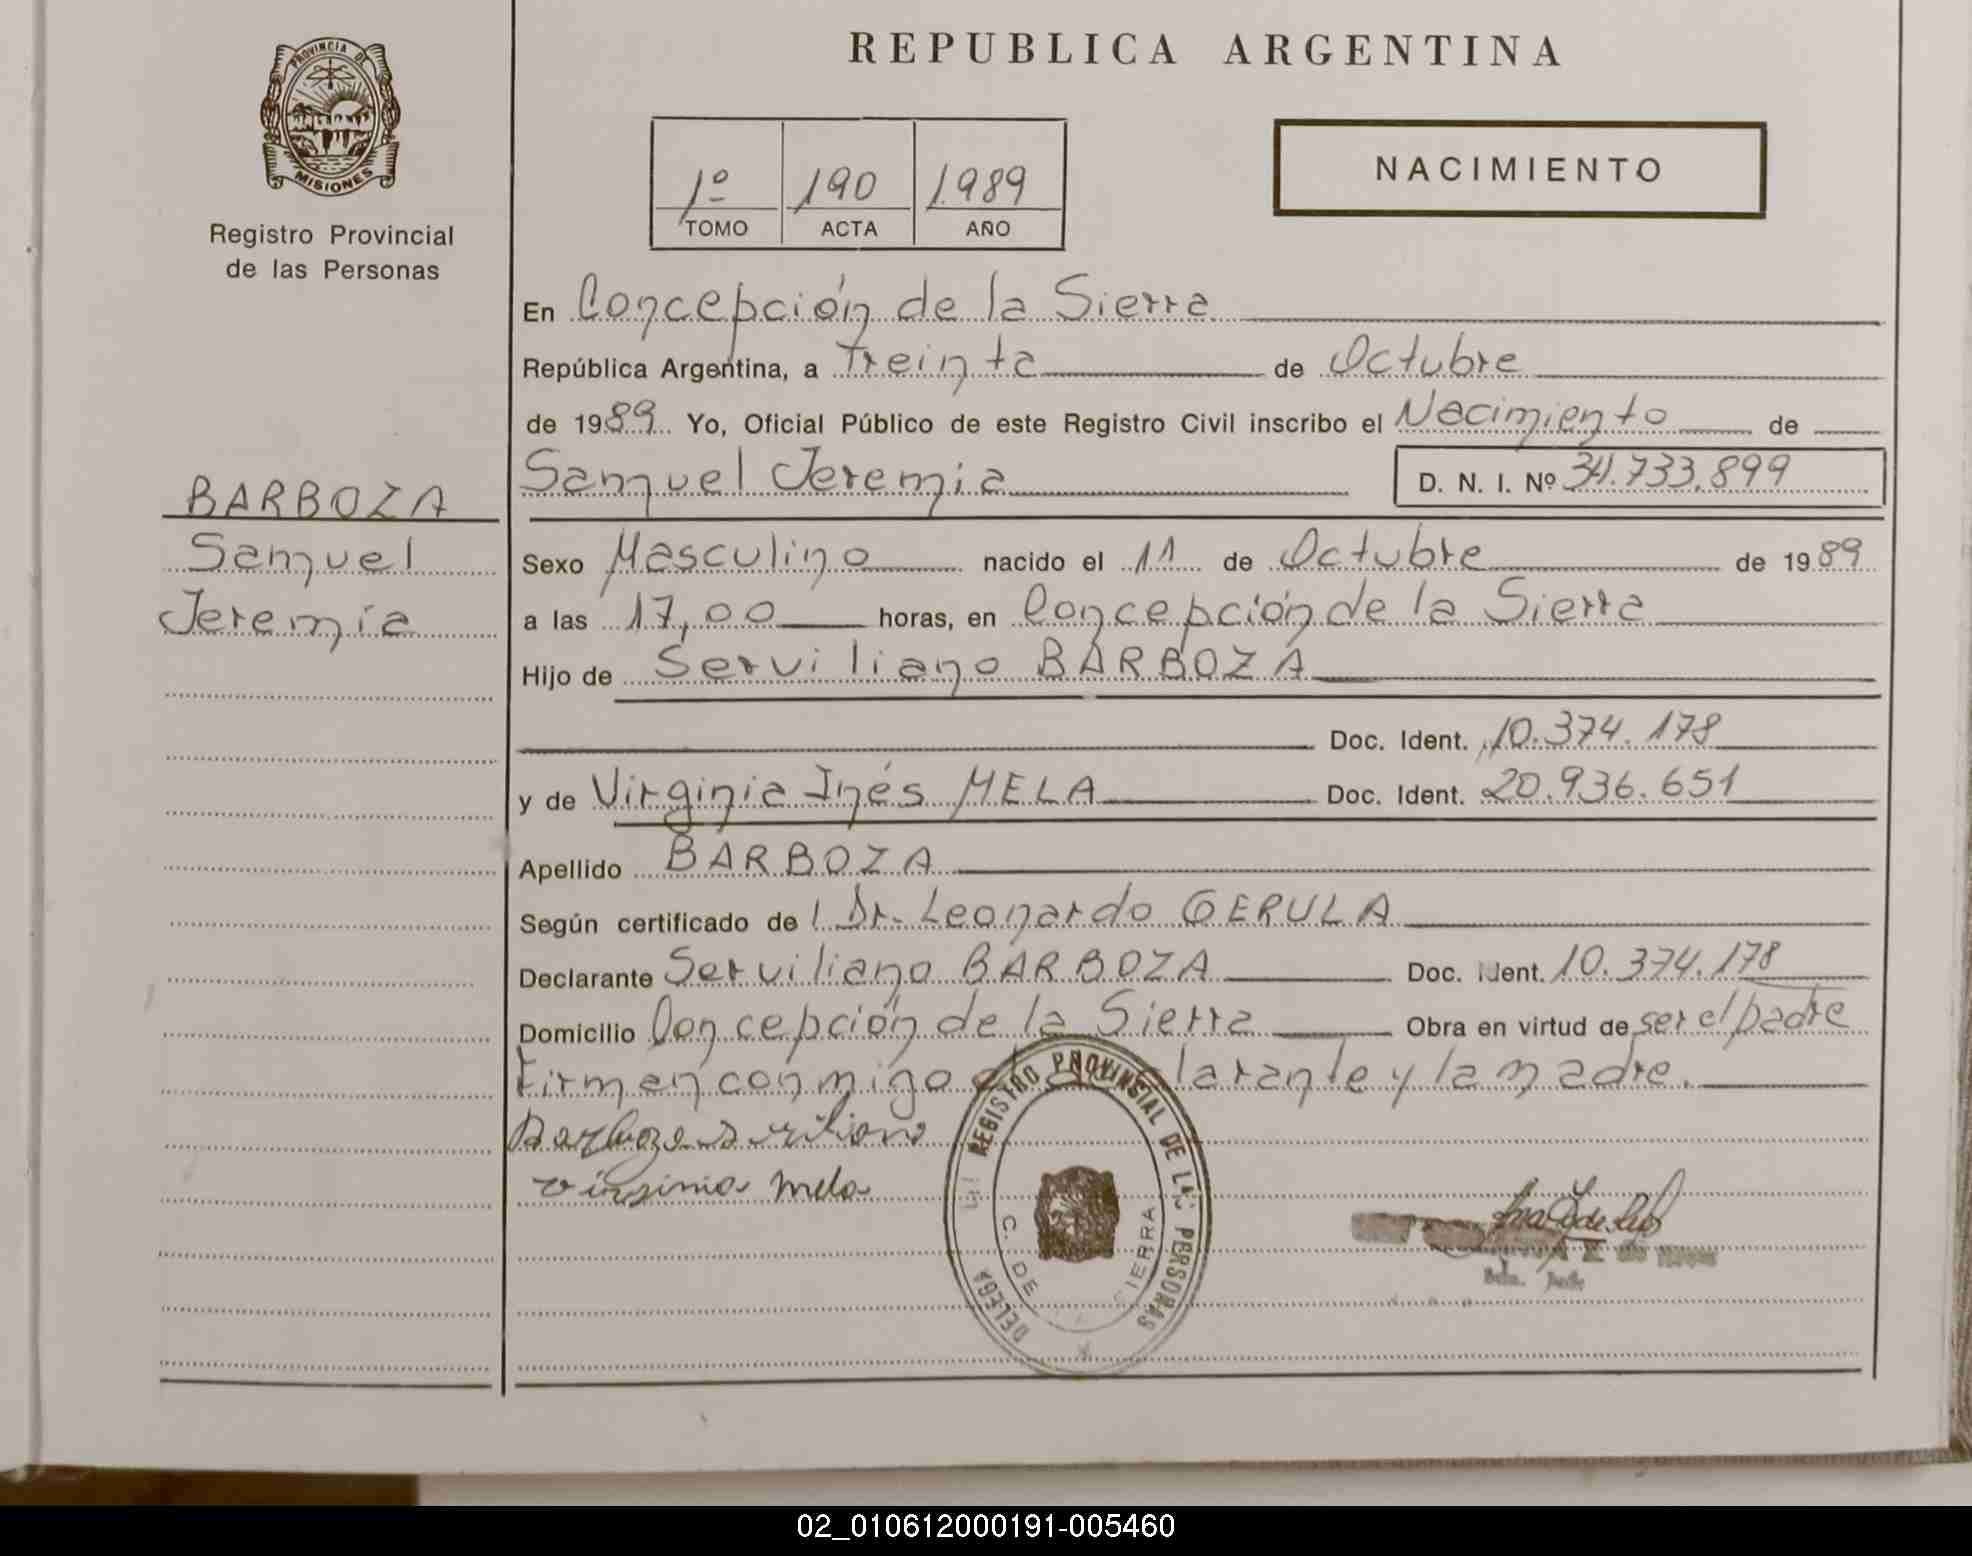 PROVINCIA DE
MISIONES
Registro Provincial
de las Personas
BARBOZA
Samuel
Jeremía
REPUBLICA ARGENTINA
1º 190 1.989
TOMO ACTA AÑO
NACIMIENTO
En Concepción de la Sierra
República Argentina, a Treinta de Octubre
de 1989. Yo, Oficial Público de este Registro Civil inscribo el Nacimiento de
Samuel Jeremía D. N. I. Nº 34.733.899
Sexo Masculino nacido el 11 de Octubre de 1989
a las 17,00 horas, en Concepción de la Sierra
Hijo de Serviliano BARBOZA
Doc. Ident. 10.374.178
y de Virginia Inés MELA Doc. Ident. 20.936.651
Apellido BARBOZA
Según certificado de l Dr. Leonardo GERULA
Declarante Serviliano BARBOZA Doc. Ident. 10.374.178
Domicilio Concepción de la Sierra Obra en virtud de ser el padre
Firman conmigo larante y la madre.
Barboza Serviliano
virginia mela
REGISTRO PROVINCIAL DE LAS PERSONAS
DELEG
C. DE SIERRA
02_010612000191-005460